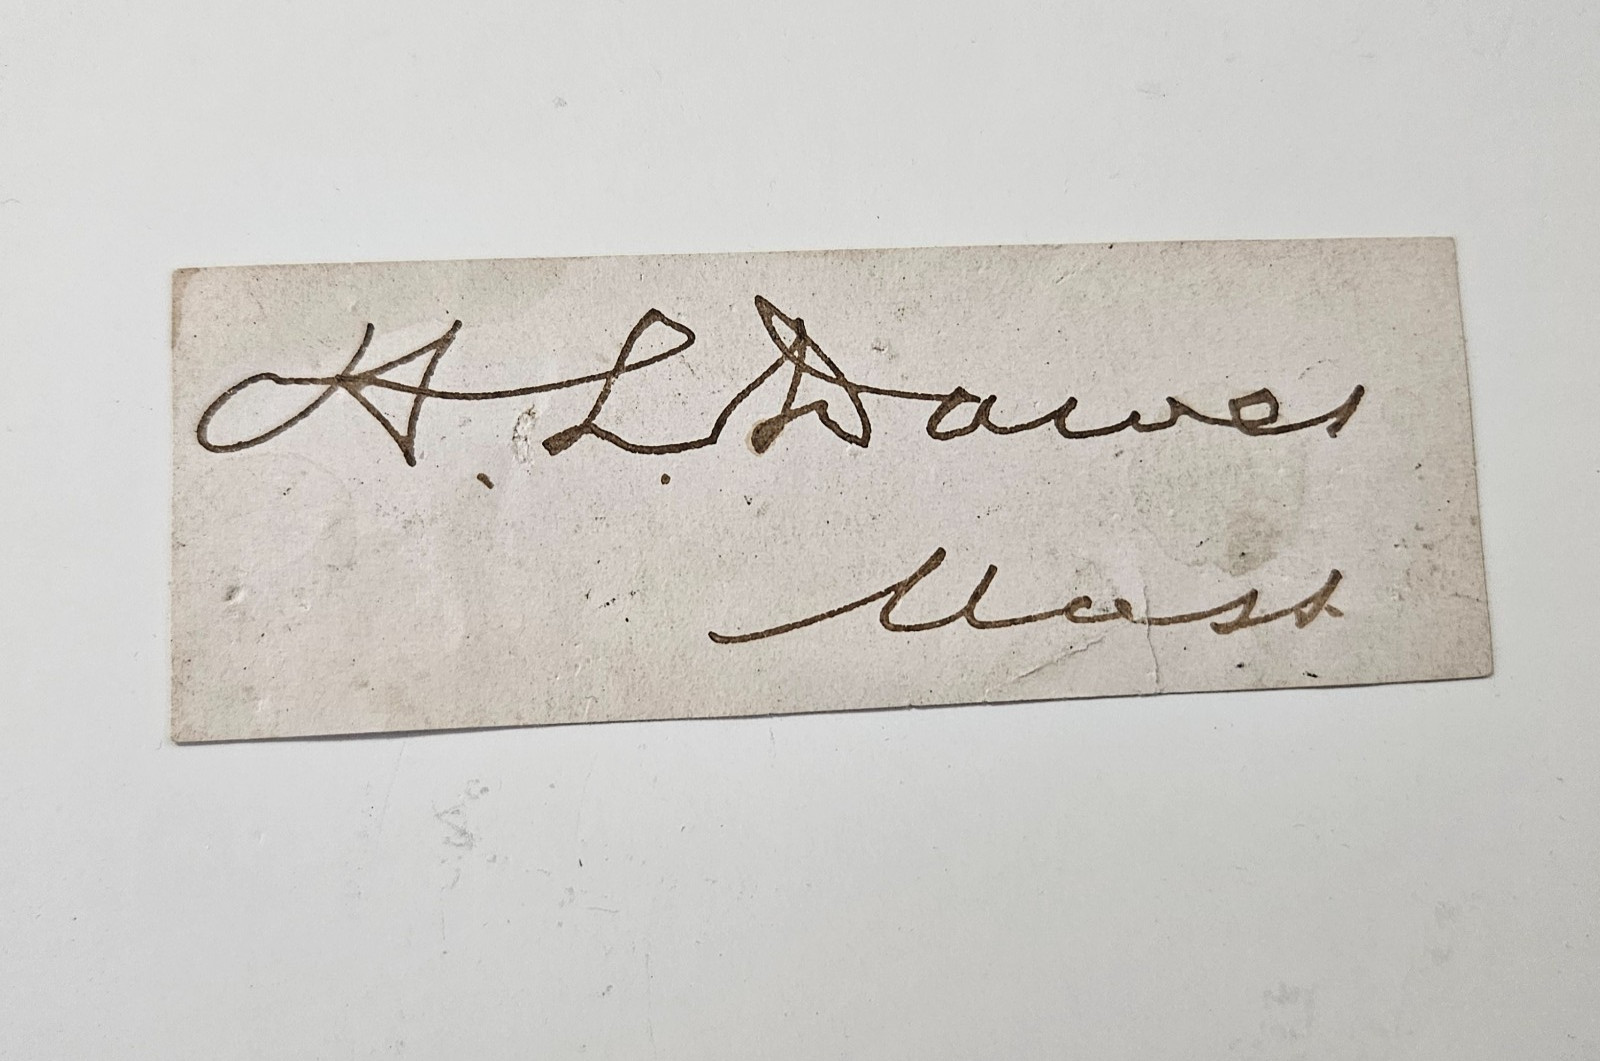 H. L. Dawes
Mass